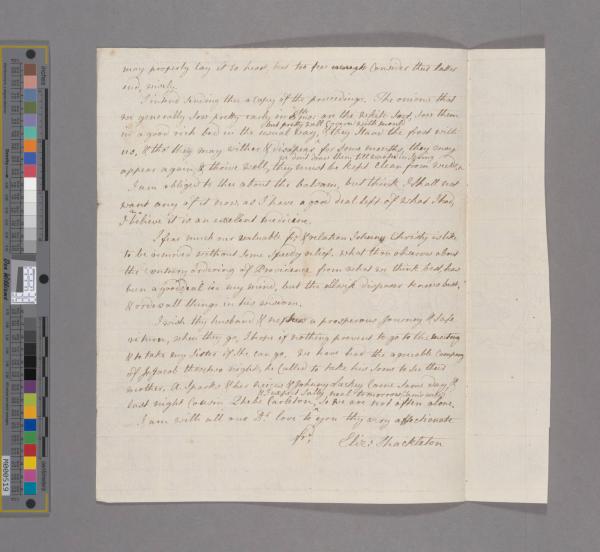 may properly lay it to heart, but too few enough consider this taken
and, surely.
I intend sending thee a copy of the proceedings. The onions that
we generally sow pretty early in 8th mo: are the white sort, sow them
but pretty well cover'd with mould
in a good rich bed in the usual way, & they stand the frost with
us, & tho' they may wither & disappear for some months, they may
we don't draw them till
appear again & thrive well, they must be kept clean from weeds,
I am obliged to thee about the balsam, but think I shall not
want any of it now, as I have a good deal left of what I had,
I believe it is an excellent medicine.
I fear much our valuable frd. & relation Johnny Christy is like
to be removed without some speedy relief. what thou observes about
the contrary ordering of Providence from what we think best, has
been a good deal in my mind, but the allwise disposer knows best,
& orders all things in his wisdom.
I wish thy husband & nephew a prosperous journey & safe
return, when they go, I hope if nothing prevent to go to the meeting
& to take my sister if she can go. We have had the agreeable company
of Jos: Jacob these two nights, he called to take his sons to see their
mother. A. Sparks & her nieces & Johnny Luckey came same day, &
& I expect Sally next tomorrow
last night cousin Phebe Carleton, so we are not often alone.
I am with all our dr. love to you thy very affectionate
frd.
Eliz: Shackleton
inches
M000519